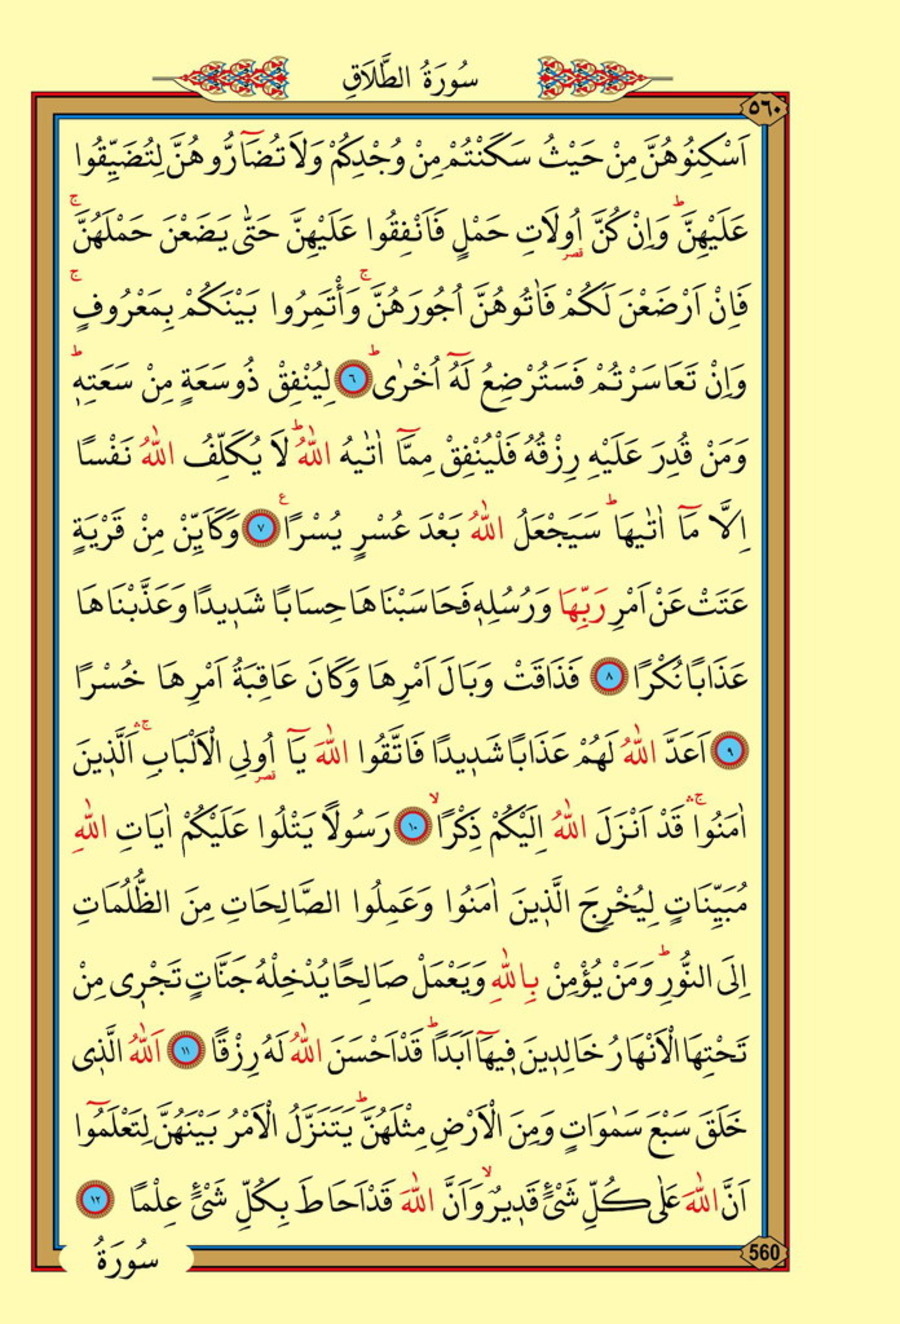 سُورَةُ الطَّلَاقِ
٥٦٠
اَسْكِنُوهُنَّ مِنْ حَيْثُ سَكَنْتُمْ مِنْ وُجْدِكُمْ وَلَا تُضَٓارُّوهُنَّ لِتُضَيِّقُوا
عَلَيْهِنَّۜ وَاِنْ كُنَّ اُو۬لَاتِ حَمْلٍ فَاَنْفِقُوا عَلَيْهِنَّ حَتّٰى يَضَعْنَ حَمْلَهُنَّۚ
فَاِنْ اَرْضَعْنَ لَكُمْ فَاٰتُوهُنَّ اُجُورَهُنَّۚ وَأْتَمِرُوا بَيْنَكُمْ بِمَعْرُوفٍۚ
وَاِنْ تَعَاسَرْتُمْ فَسَتُرْضِعُ لَهُٓ اُخْرٰىۜ ٦ لِيُنْفِقْ ذُوسَعَةٍ مِنْ سَعَتِه۪ۜ
وَمَنْ قُدِرَ عَلَيْهِ رِزْقُهُ فَلْيُنْفِقْ مِمَّٓا اٰتٰيهُ اللّٰهُۜ لَا يُكَلِّفُ اللّٰهُ نَفْسًا
اِلَّا مَٓا اٰتٰيهَاۜ سَيَجْعَلُ اللّٰهُ بَعْدَ عُسْرٍ يُسْرًا ع ٧ وَكَاَيِّنْ مِنْ قَرْيَةٍ
عَتَتْ عَنْ اَمْرِ رَبِّهَا وَرُسُلِه۪ فَحَاسَبْنَاهَا حِسَابًا شَد۪يدًا وَعَذَّبْنَاهَا
عَذَابًا نُكْرًا ٨ فَذَاقَتْ وَبَالَ اَمْرِهَا وَكَانَ عَاقِبَةُ اَمْرِهَا خُسْرًا
٩ اَعَدَّ اللّٰهُ لَهُمْ عَذَابًا شَد۪يدًا فَاتَّقُوا اللّٰهَ يَٓا اُو۬لِي الْاَلْبَابِۚۛ اَلَّذ۪ينَ
اٰمَنُواۚۛ قَدْ اَنْزَلَ اللّٰهُ اِلَيْكُمْ ذِكْرًاۙ ١٠ رَسُولًا يَتْلُوا عَلَيْكُمْ اٰيَاتِ اللّٰهِ
مُبَيِّنَاتٍ لِيُخْرِجَ الَّذ۪ينَ اٰمَنُوا وَعَمِلُوا الصَّالِحَاتِ مِنَ الظُّلُمَاتِ
اِلَى النُّورِۜ وَمَنْ يُؤْمِنْ بِاللّٰهِ وَيَعْمَلْ صَالِحًا يُدْخِلْهُ جَنَّاتٍ تَجْر۪ي مِنْ
تَحْتِهَا الْاَنْهَارُ خَالِد۪ينَ ف۪يهَٓا اَبَدًاۜ قَدْ اَحْسَنَ اللّٰهُ لَهُ رِزْقًا ١١ اَللّٰهُ الَّذ۪ي
خَلَقَ سَبْعَ سَمٰوَاتٍ وَمِنَ الْاَرْضِ مِثْلَهُنَّۜ يَتَنَزَّلُ الْاَمْرُ بَيْنَهُنَّ لِتَعْلَمُٓوا
اَنَّ اللّٰهَ عَلٰى كُلِّ شَيْءٍ قَد۪يرٌۙ وَاَنَّ اللّٰهَ قَدْ اَحَاطَ بِكُلِّ شَيْءٍ عِلْمًا ١٢
560
سُورَةُ